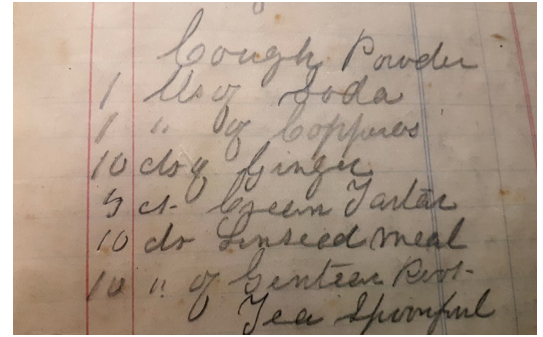 Cough Powder
1 lb of Soda
1 " of Copperos
10 cts of Ginger
5 ct. Cream Tartar
10 cts Linseed meal
10 " of Gentian Root
Tea Spoonful